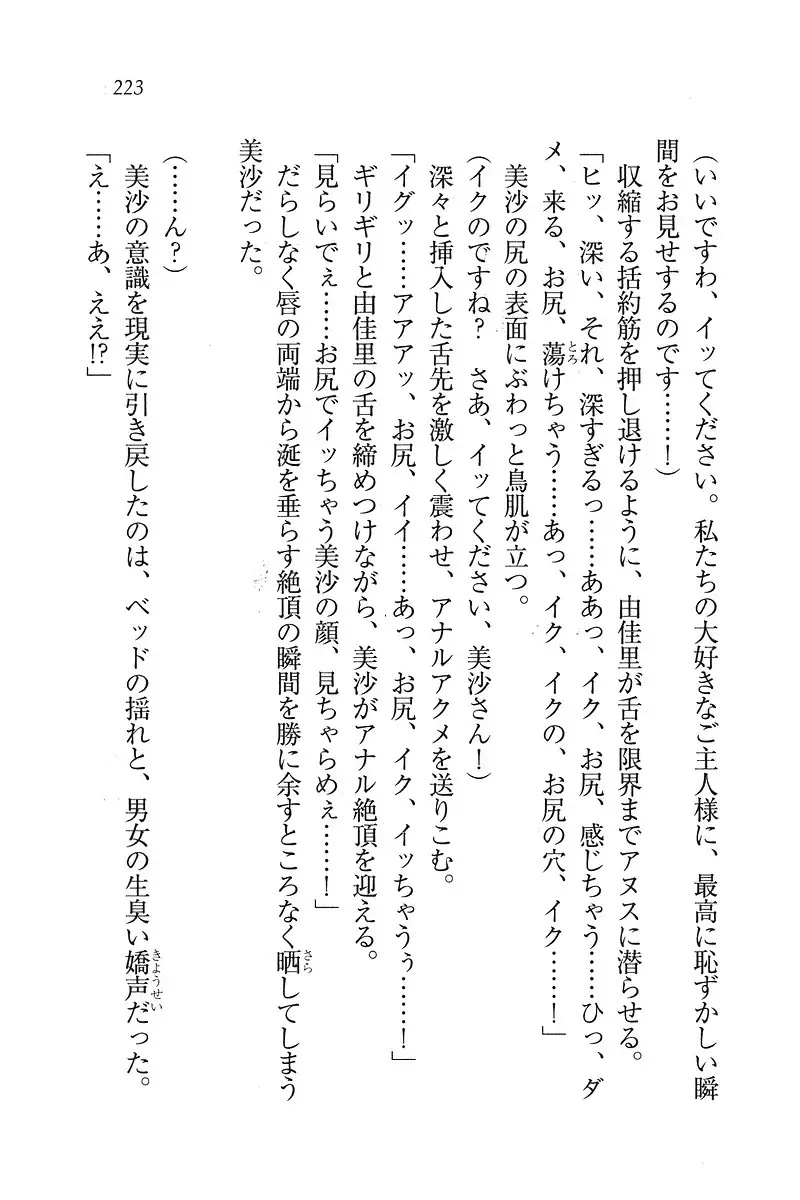 223
（いいですわ、イッてください。私たちの大好きなご主人様に、最高に恥ずかしい瞬
間をお見せするのです……！）
収縮する括約筋を押し退けるように、由佳里が舌を限界までアヌスに潜らせる。
「ヒッ、深い、それ、深すぎるっ……ああっ、イク、お尻、感じちゃう……ひっ、ダ
メ、来る、お尻、蕩けちゃう……あっ、イク、イクの、お尻の穴、イク……！」
美沙の尻の表面にぶわっと鳥肌が立つ。
（イクのですね？　さあ、イッてください、美沙さん！）
深々と挿入した舌先を激しく震わせ、アナルアクメを送りこむ。
「イグッ……アアアッ、お尻、イイ……あっ、お尻、イク、イッちゃうぅ……！」
ギリギリと由佳里の舌を締めつけながら、美沙がアナル絶頂を迎える。
「見らいでぇ……お尻でイッちゃう美沙の顔、見ちゃらめぇ……！」
だらしなく唇の両端から涎を垂らす絶頂の瞬間を勝に余すところなく晒してしまう
美沙だった。
（……ん？）
美沙の意識を現実に引き戻したのは、ベッドの揺れと、男女の生臭い嬌声だった。
「え……あ、ええ!?」